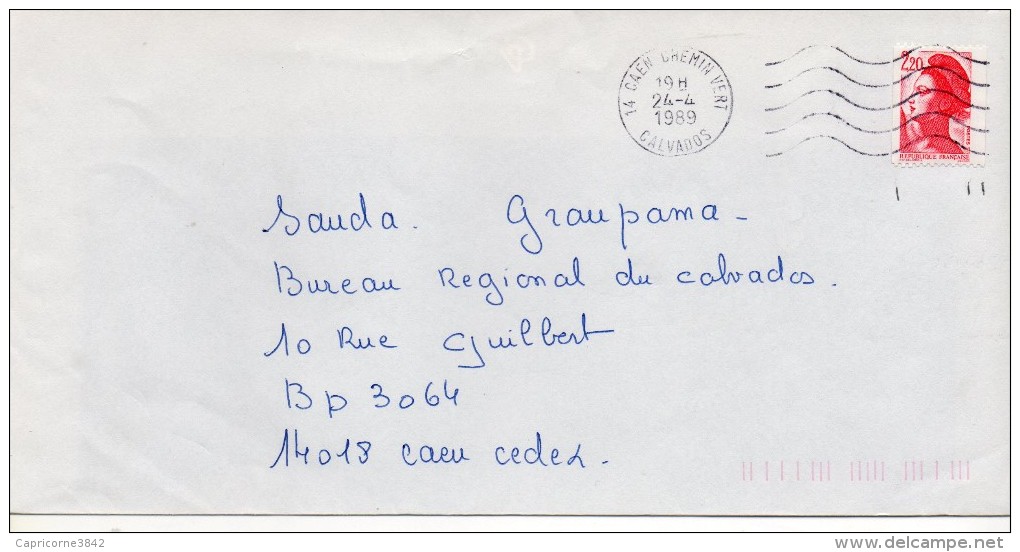 14 CAEN CHEMIN VERT
19 H
24-4
1989
CALVADOS
2,20
REPUBLIQUE FRANÇAISE
Sauda. Graupama -
Bureau Regional du calvados.
10 Rue Guilbert
Bp 3064
14018 caen cedex.
Capricorne3842
www.delcampe.net